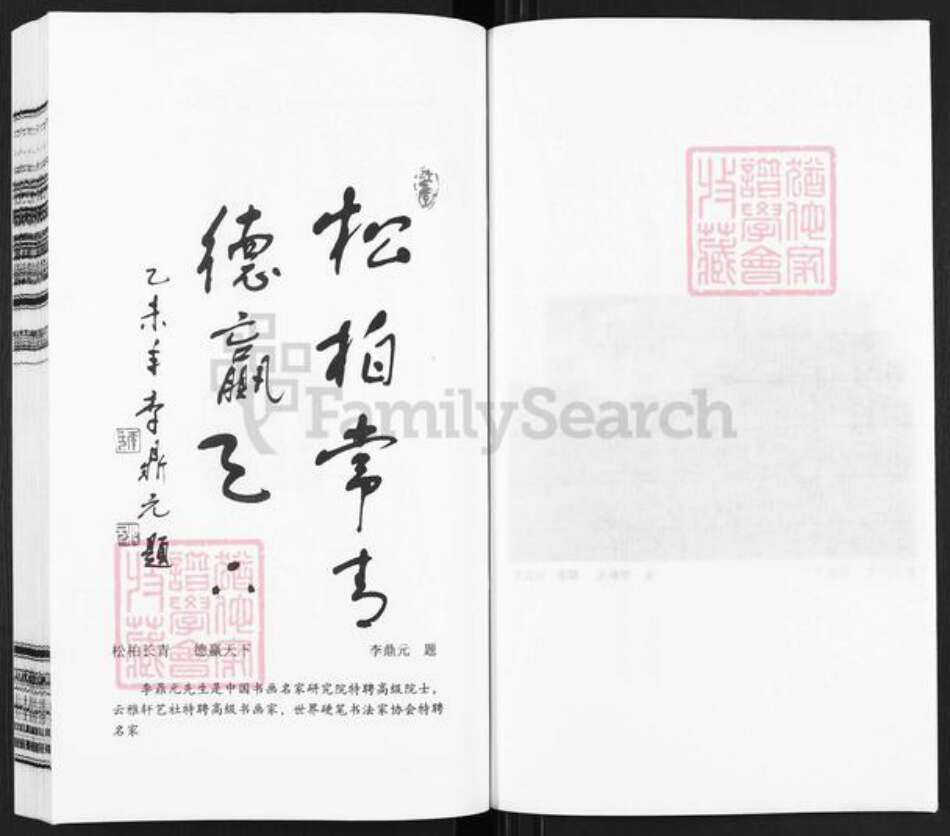 松柏常青
德赢天下
乙未年李鼎元题
松柏长青 德赢天下 李鼎元 题
李鼎元先生是中国书画名家研究院特聘高级院士，
云雅轩艺社特聘高级书画家，世界硬笔书法家协会特聘
名家
FamilySearch
譜學會
收藏